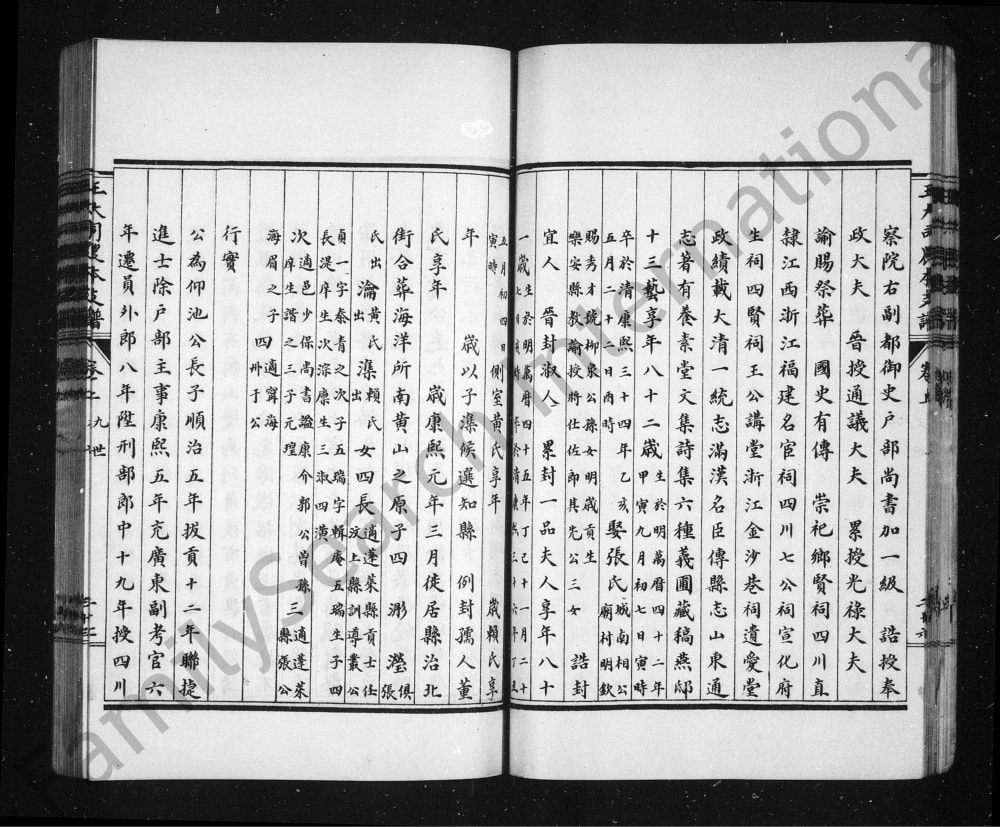 察院右副都御史戶部尚書加一級　誥授奉
政大夫　晉授通議大夫　累授光祿大夫
諭賜祭葬　國史有傳　崇祀鄉賢祠四川直
隸江西浙江福建名宦祠四川七公祠宣化府
生祠四賢祠王公講堂浙江金沙巷祠遺愛堂
政績載大清一統志滿漢名臣傳縣志山東通
志著有養素堂文集詩集六種義圃藏稿燕邸
十三藝享年八十二歲
生於明萬曆四十二年
甲寅九月初七日寅時
卒於清康熙三十四年乙亥
五月二十二日酉時
娶張氏
城南相公
廟村明欽
賜秀才號柳泉公孫女明歲貢生
樂安縣教諭授將仕佐郎其先公三女
誥封
宜人　晉封淑人　累封一品夫人享年八十
一歲
生於明萬曆四十五年丁巳十一月二十
五月初四日
寅時
側室黃氏享年
歲賴氏享
年　歲以子濼候選知縣　例封孺人董
氏享年　歲康熙元年三月徙居縣治北
街合葬海洋所南黃山之原子四　瀰　瀅
俱張
氏出
瀹
出黃氏
濼
賴氏出
女四長
適蓬萊縣貢士任
汶上縣訓導叢公
貞一字泰青之次子五瑞字輯庵五瑞生子四
長湜庠生次淙廩生三淑四潢
次適邑少保尚書謚康介郭公曾孫三適蓬萊
庠生諧之三子元瑆
縣張公
海眉之子
四
適寧海
州于公
行實
公為仰池公長子順治五年拔貢十二年聯捷
進士除戶部主事康熙五年充廣東副考官六
年遷員外郎八年陞刑部郎中十九年授四川
九世
FamilySearch International